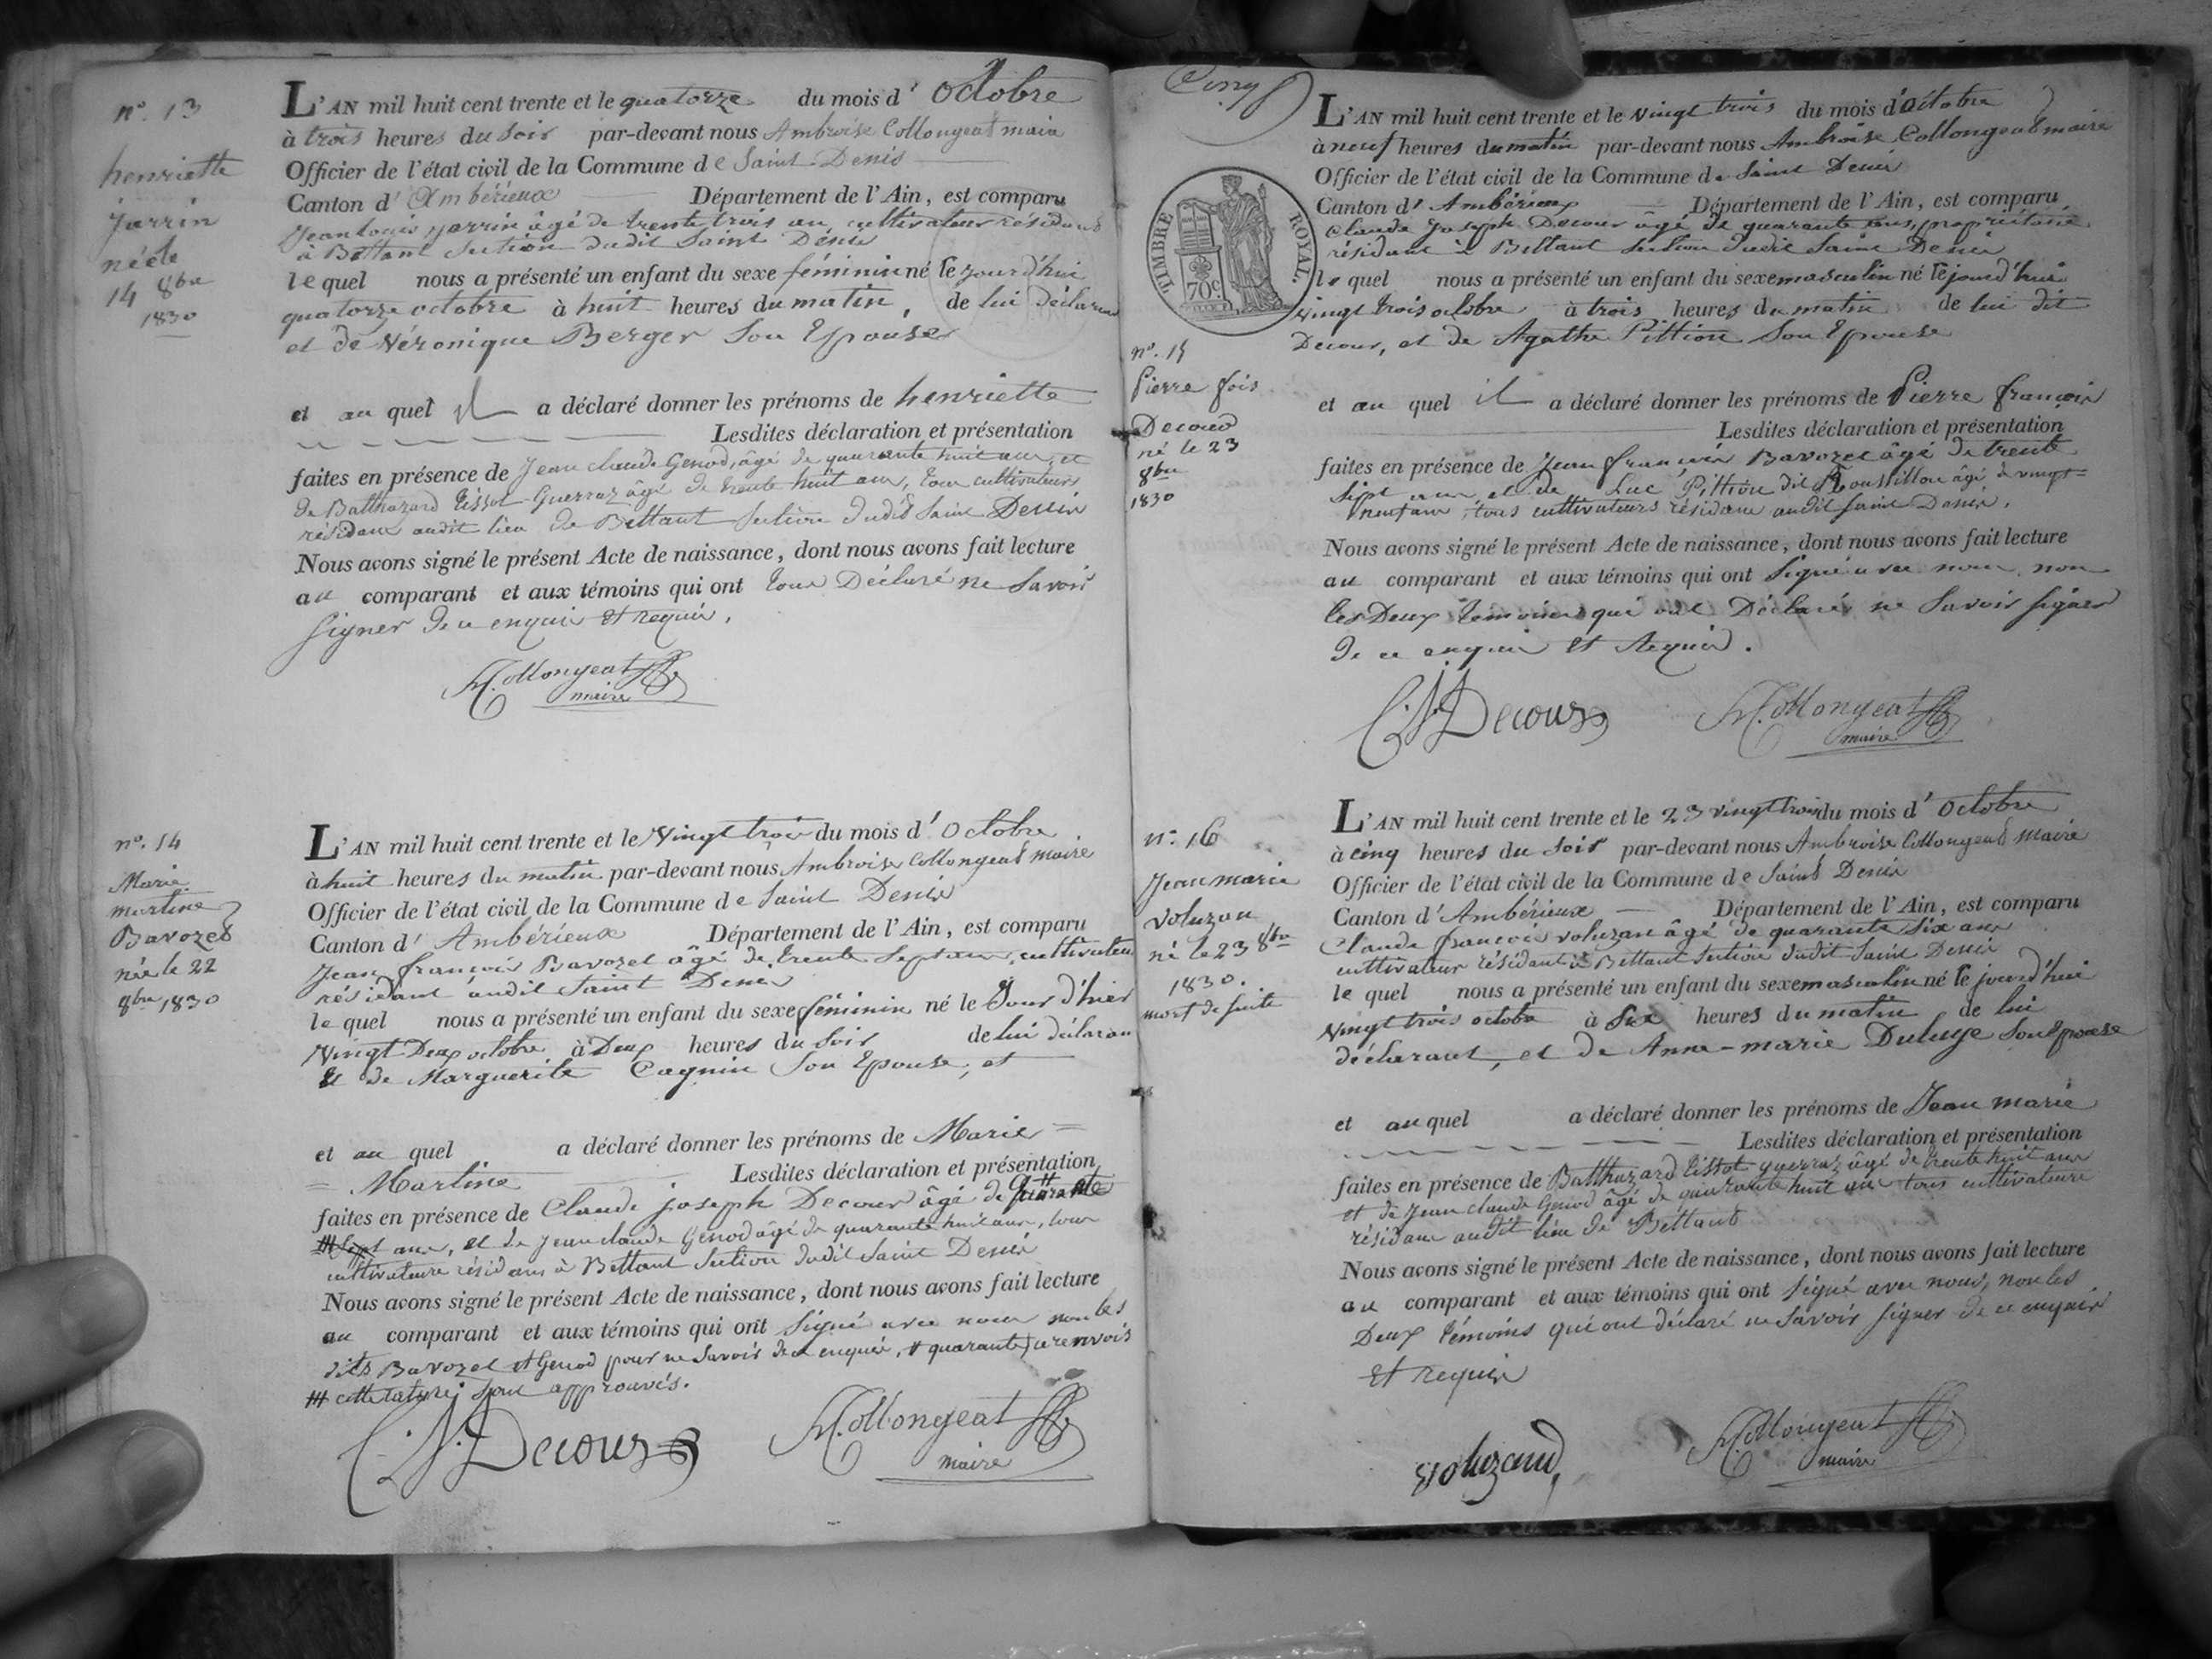 n°. 13
henriette
jarrin
née le
14 8bre
1830
L'AN mil huit cent trente et le quatorze du mois d' Octobre
à trois heures du soir par-devant nous Ambroise Collongeat maire
Officier de l'état civil de la Commune de Saint Denis
Canton d' Ambérieux Département de l'Ain, est comparu
Jean Louis jarrin âgé de trente trois ans cultivateur résidant
à Bettant Section dudit Saint Denis
lequel nous a présenté un enfant du sexe féminin né le jourd'hui
quatorze octobre à huit heures du matin, de lui déclarant
et de Véronique Berger Son Epouse
et au quel il a déclaré donner les prénoms de henriette
Lesdites déclaration et présentation
faites en présence de Jean claude Genod, âgé de quarante huit ans, et
de Balthazard Tissot-Guerraz âgé de trente huit ans, tous cultivateurs
résidans audit lieu de Bettant Section dudit Saint Denis
Nous avons signé le présent Acte de naissance, dont nous avons fait lecture
au comparant et aux témoins qui ont tous Déclaré ne Savoir
Signer de ce enquis et requis.
Collongeat
maire
n°. 14
Marie
martine
Bavozet
née le 22
8bre 1830
L'AN mil huit cent trente et le Vingt trois du mois d' Octobre
à huit heures du matin par-devant nous Ambroise Collongeat maire
Officier de l'état civil de la Commune de Saint Denis
Canton d' Ambérieux Département de l'Ain, est comparu
Jean françois Bavozet âgé de trente Sept ans, cultivateur
résidant audit Saint Denis
lequel nous a présenté un enfant du sexe féminin né le Jour d'hier
Vingt Deux octobre à Deux heures du Soir de lui déclarant
Et de Marguerite Cagnin Son Epouse, et
et au quel a déclaré donner les prénoms de Marie =
= Martine Lesdites déclaration et présentation
faites en présence de Claude joseph Decour âgé de quarante
Sept ans, et de Jean claude Genod âgé de quarante huit ans, tous
cultivateurs résidans à Bettant Section dudit Saint Denis
Nous avons signé le présent Acte de naissance, dont nous avons fait lecture
au comparant et aux témoins qui ont Signé avec nous non les
dits Bavozet et Genod pour ne Savoir de ce enquis, # quarante) ce renvois
# cette rature Sont approuvés.
C. J. Decour
Collongeat
maire
Cinq
TIMBRE ROYAL.
70c
n°. 15
Pierre fois
Decour
né le 23
8bre
1830
L'AN mil huit cent trente et le vingt trois du mois d' Octobre
à neuf heures du matin par-devant nous Ambroise Collongeat maire
Officier de l'état civil de la Commune de Saint Denis
Canton d' Ambérieux Département de l'Ain, est comparu
Claude Joseph Decour âgé de quarante ans, propriétaire
résidant à Bettant Section dudit Saint Denis
lequel nous a présenté un enfant du sexe masculin né le jourd'hui
vingt trois octobre à trois heures du matin de lui dit
Decour, et de Agathe Pittion Son Epouse
et au quel il a déclaré donner les prénoms de Pierre françois
Lesdites déclaration et présentation
faites en présence de Jean françois Bavozet âgé de trente
Sept ans, et de Luc Pittion dit Roustillou âgé de vingt=
neuf ans, tous cultivateurs résidans audit Saint Denis.
Nous avons signé le présent Acte de naissance, dont nous avons fait lecture
au comparant et aux témoins qui ont Signé avec nous, non
les Deux témoins qui ont Déclarés ne Savoir Signer
De ce enquis Et Requis.
C. J. Decour
Collongeat
maire
n°. 16
Jean marie
voluzan
né le 23 8bre
1830.
mort de suite
L'AN mil huit cent trente et le 23 vingt trois du mois d' Octobre
à cinq heures du soir par-devant nous Ambroise Collongeat maire
Officier de l'état civil de la Commune de Saint Denis
Canton d' Ambérieux Département de l'Ain, est comparu
Claude françois voluzan âgé de quarante Six ans
cultivateur résidant à Bettant Section dudit Saint Denis
lequel nous a présenté un enfant du sexe masculin né le jourd'hui
Vingt trois octobre à Six heures du matin de lui
déclarant, et de Anne-marie Duluye Son Epouse
et au quel a déclaré donner les prénoms de Jean marie
Lesdites déclaration et présentation
faites en présence de Balthazard Tissot guerraz âgé de trente huit ans
et de Jean claude Genod âgé de quarante huit ans tous cultivateurs
résidans audit lieu de Bettant
Nous avons signé le présent Acte de naissance, dont nous avons fait lecture
au comparant et aux témoins qui ont Signé avec nous, non les
Deux témoins qui ont déclaré ne Savoir Signer de ce enquis
Et requis
voluzand
Collongeat
maire